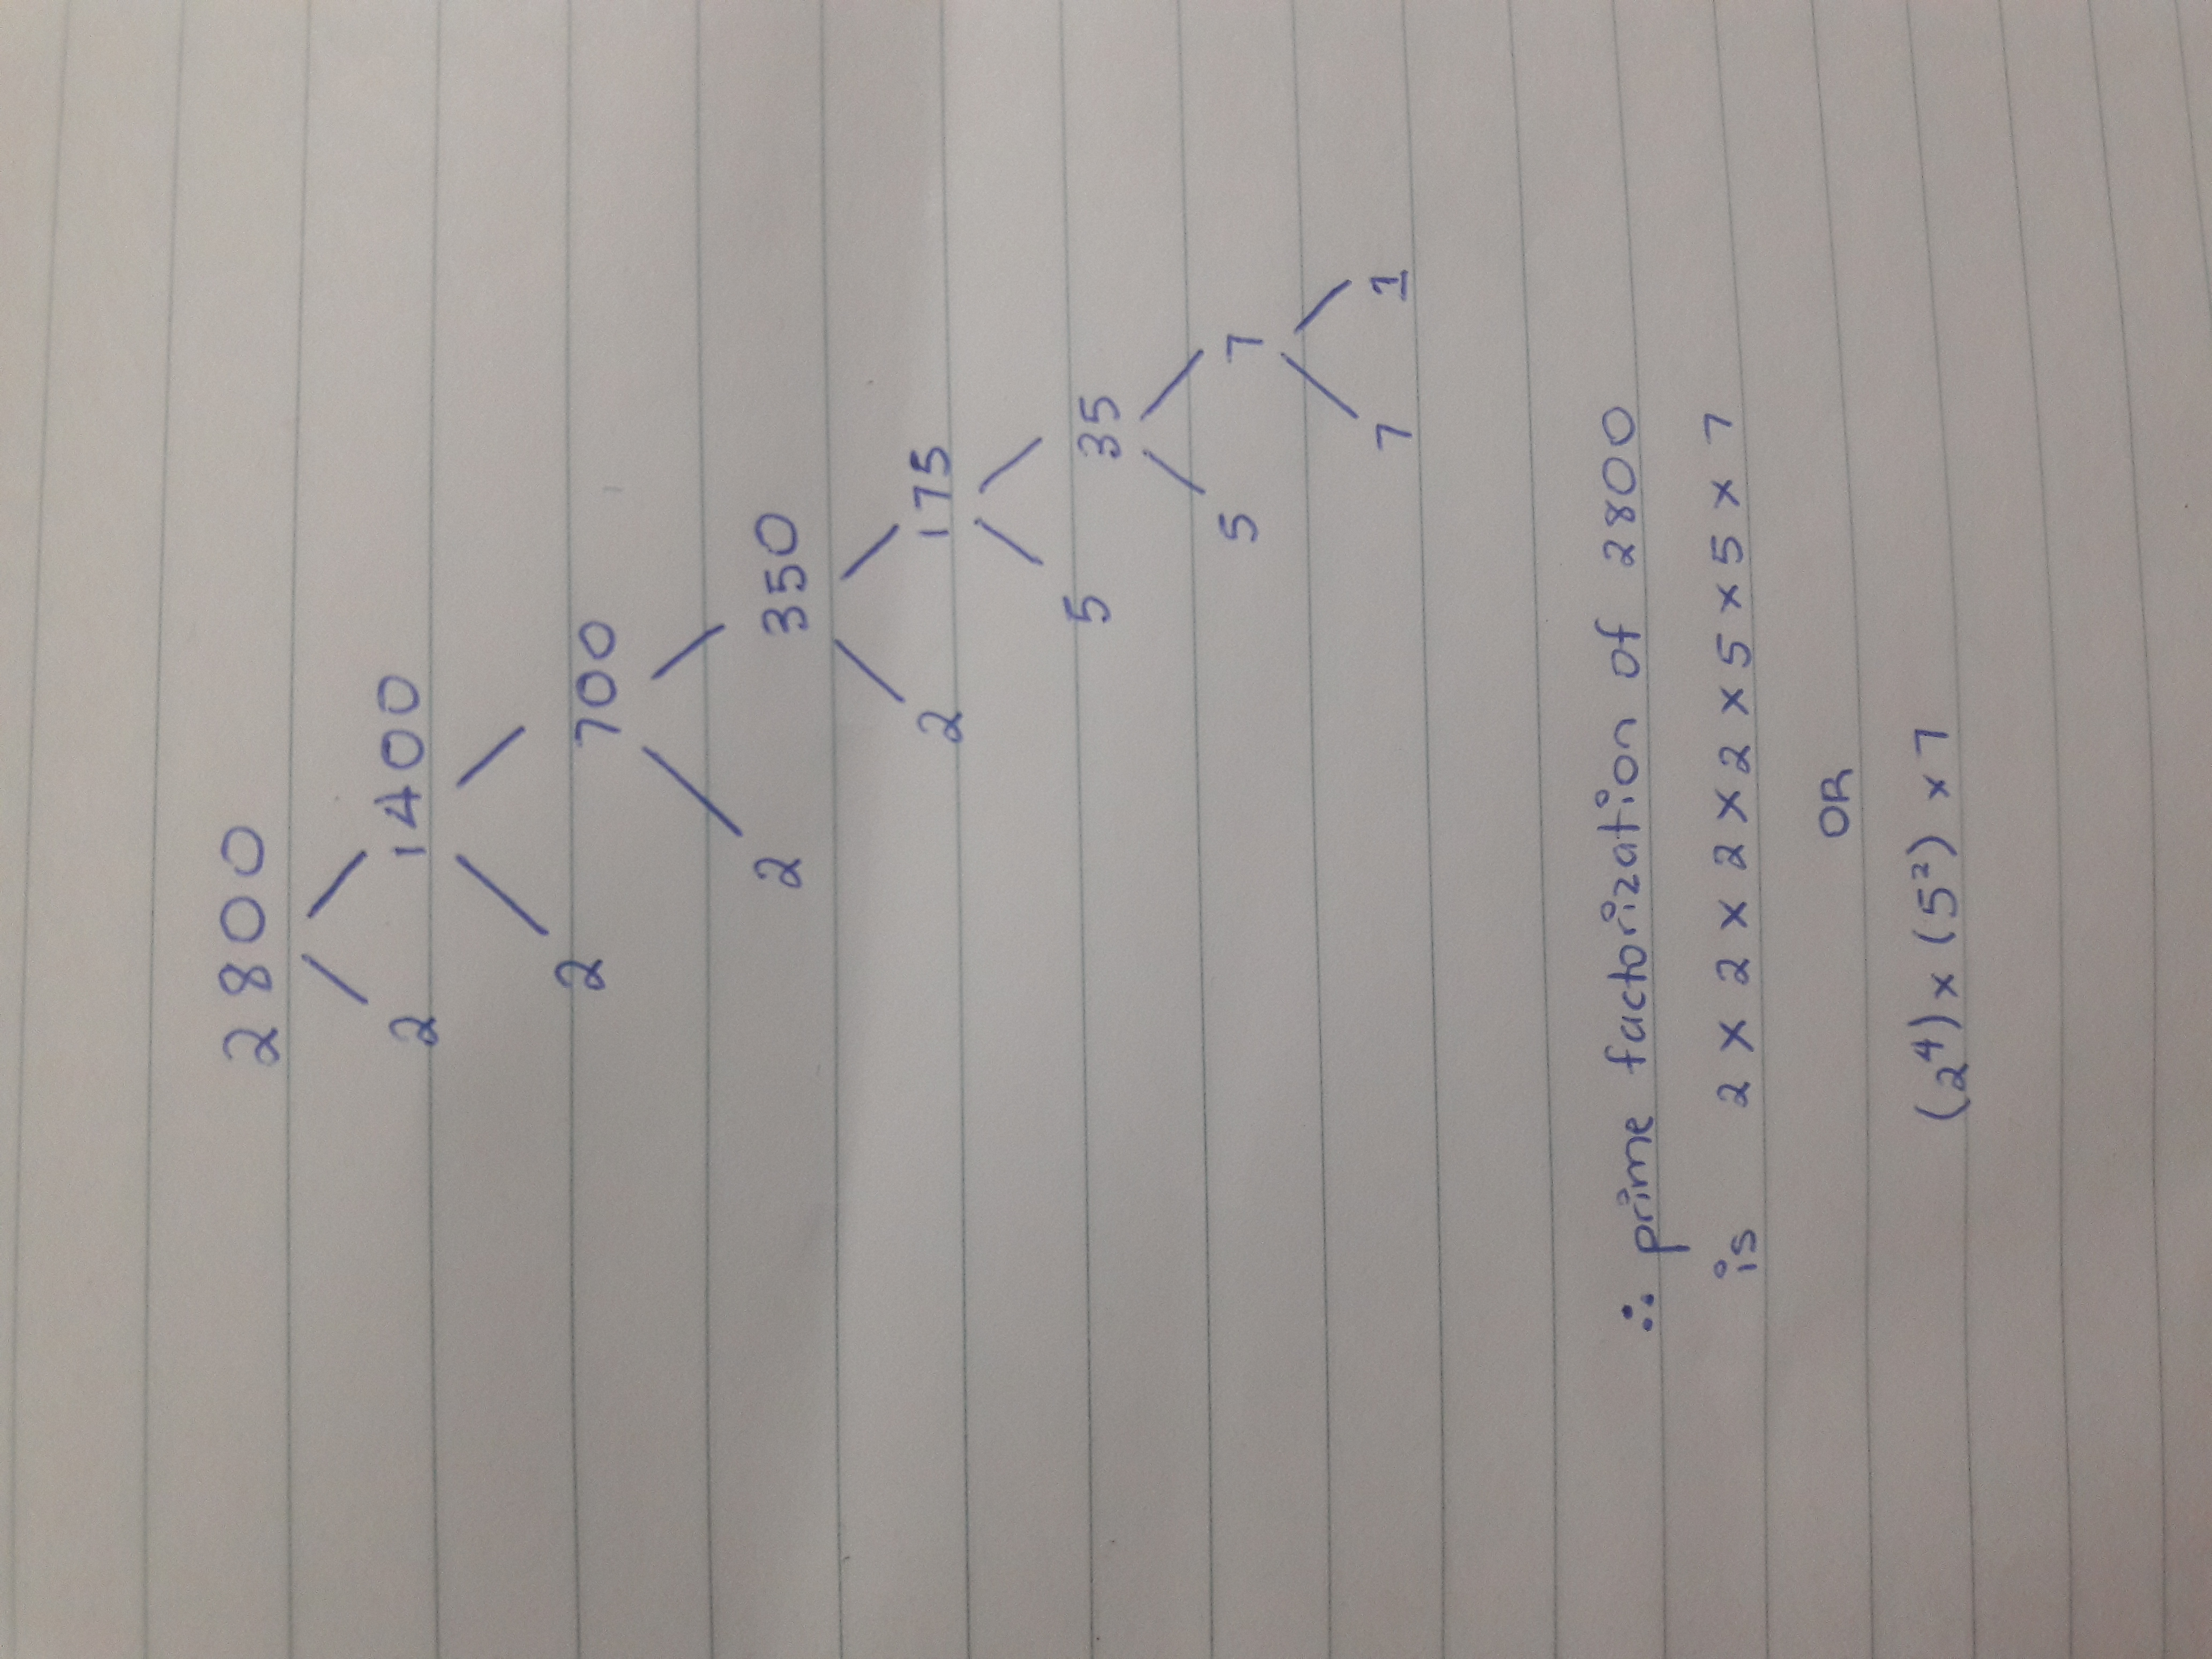 2800
2 1400
2 700
2 350
2 175
5 35
5 7
7 1
∴ prime factorization of 2800
is 2 x 2 x 2 x 2 x 5 x 5 x 7
OR
(2⁴) x (5²) x 7